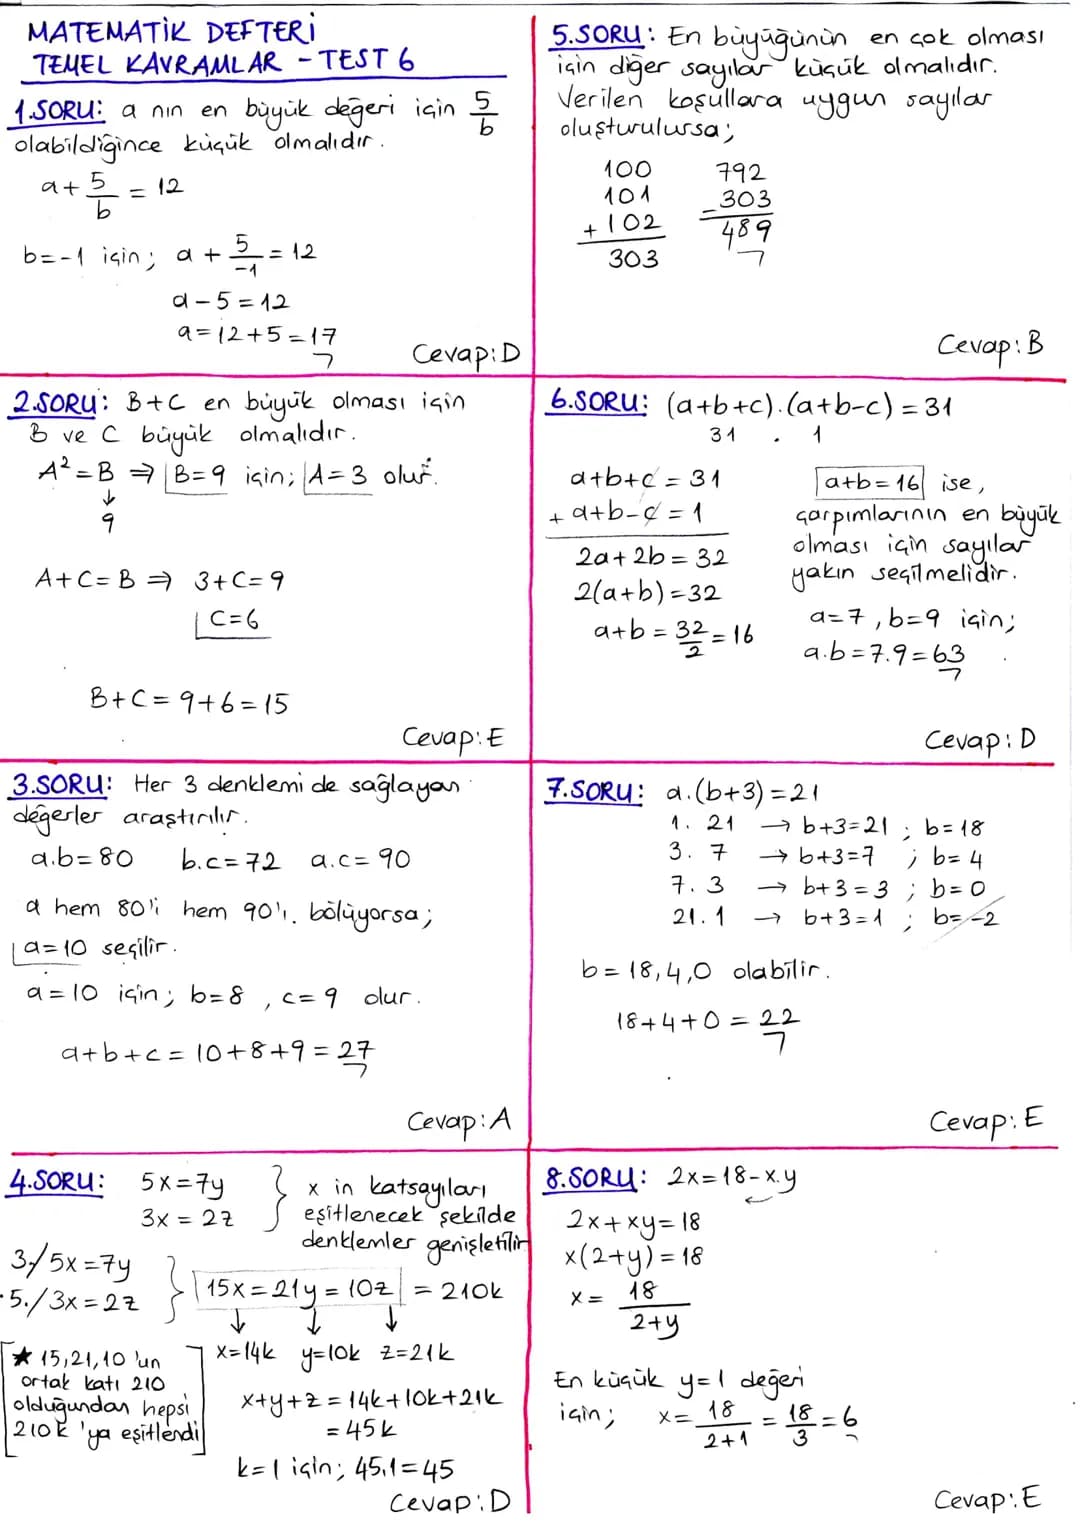 MATEMATİK DEFTERİ
TEMEL KAVRAMLAR - TEST 6
1.SORU: a nın en büyük değeri için 5/b
olabildiğince küçük olmalıdır.
a + 5/b = 12
b=-1 için; a + 5/-1 = 12
a - 5 = 12
a = 12+5 = 17
Cevap: D
2.SORU: B+C en büyük olması için
B ve C büyük olmalıdır.
A² = B ⇒ B=9 için; A=3 olur.
↓
9
A+C=B ⇒ 3+C=9
C=6
B+C = 9+6 = 15
Cevap: E
3.SORU: Her 3 denklemi de sağlayan
değerler araştırılır.
a.b=80 b.c=72 a.c=90
a hem 80'i hem 90'ı bölüyorsa;
a=10 seçilir.
a=10 için; b=8, c=9 olur.
a+b+c = 10+8+9 = 27
Cevap: A
4.SORU: 5x=7y
3x = 2z
x in katsayıları
eşitlenecek şekilde
denklemler genişletilir
3./ 5x=7y
5./ 3x=2z
15x = 21y = 10z = 210k
↓ ↓ ↓
x=14k y=10k z=21k
★ 15,21,10 'un
ortak katı 210
olduğundan hepsi
210k 'ya eşitlendi
x+y+z = 14k+10k+21k
= 45k
k=1 için; 45.1=45
Cevap: D
5.SORU: En büyüğünün en çok olması
için diğer sayılar küçük olmalıdır.
Verilen koşullara uygun sayılar
oluşturulursa;
100 792
101 -303
+102 489
303
Cevap: B
6.SORU: (a+b+c).(a+b-c) = 31
31 . 1
a+b+c = 31
+ a+b-c = 1
2a+2b = 32
2(a+b)=32
a+b = 32/2 = 16
a+b=16 ise,
çarpımlarının en büyük
olması için sayılar
yakın seçilmelidir.
a=7, b=9 için;
a.b=7.9=63
Cevap: D
7.SORU: a.(b+3)=21
1. 21 → b+3=21 ; b=18
3. 7 → b+3=7 ; b=4
7. 3 → b+3=3 ; b=0
21. 1 → b+3=1 ; b=-2
b = 18,4,0 olabilir.
18+4+0 = 22
Cevap: E
8.SORU: 2x=18-x.y
2x+xy=18
x(2+y)=18
x = 18/2+y
En küçük y=1 değeri
için; x = 18/2+1 = 18/3 = 6
Cevap: E